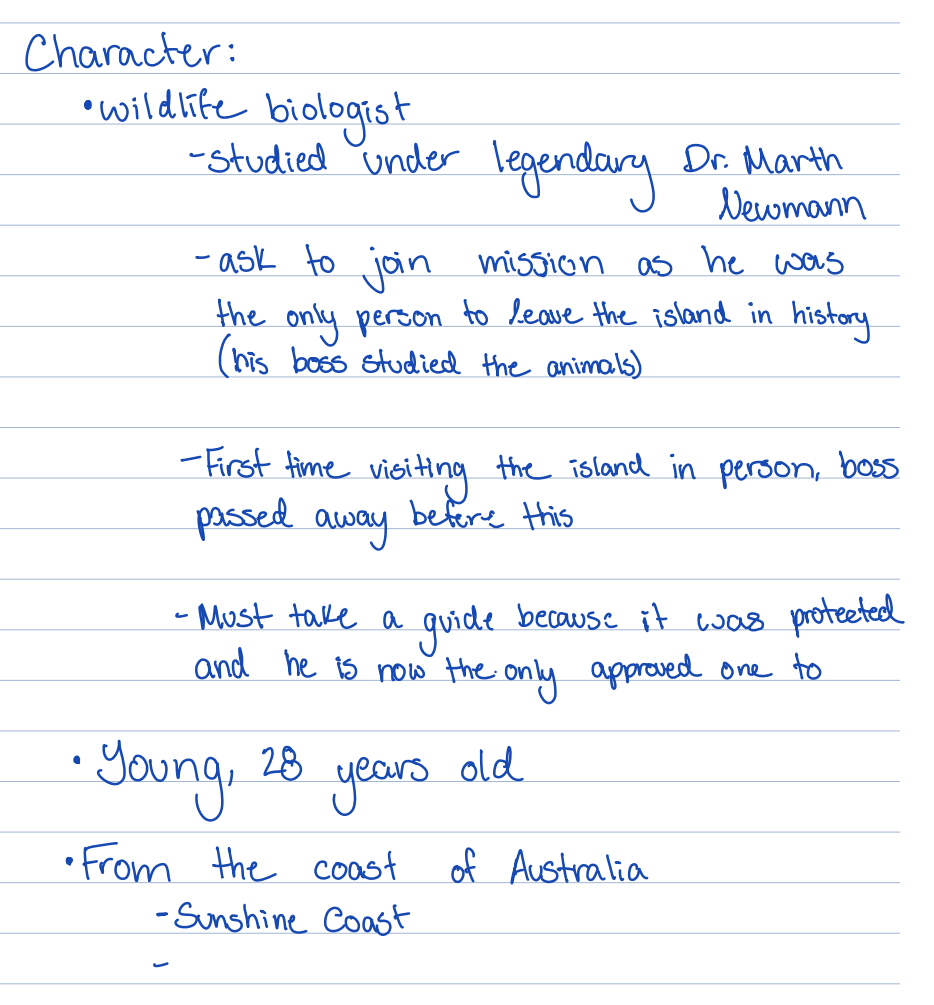 Character:
• wildlife biologist
- studied under legendary Dr. Marth
Newmann
- ask to join mission as he was
the only person to leave the island in history
(his boss studied the animals)
- First time visiting the island in person, boss
passed away before this
- Must take a guide because it was protected
and he is now the only approved one to
• Young, 28 years old
• From the coast of Australia
- Sunshine Coast
-